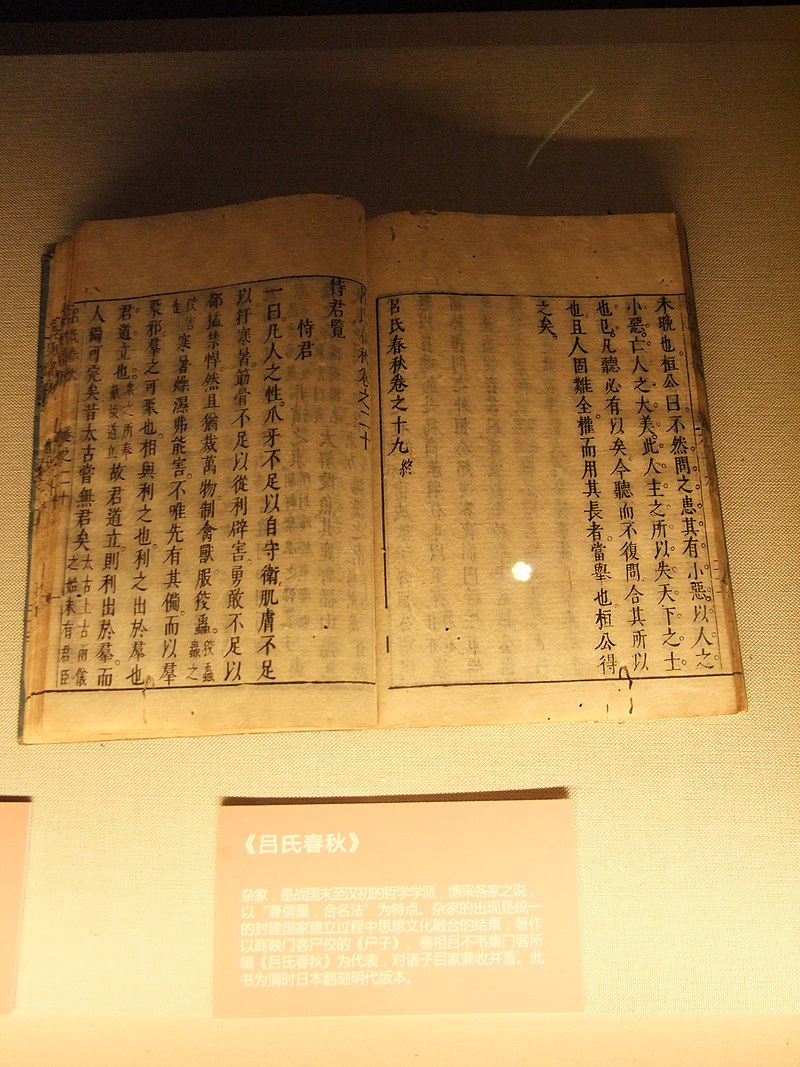 未晚也桓公曰不然問之患其有小惡以人之
小惡亡人之大美此人主之所以失天下之士
也已凡聽必有以矣今聽而不復問合其所以
也且人固難全權而用其長者當舉也桓公得
之矣
呂氏春秋卷之十九 終
呂氏春秋卷之二十
恃君覽
恃君
一曰凡人之性爪牙不足以自守衛肌膚不足
以扞寒暑筋骨不足以從利辟害勇敢不足以
卻猛禁悍然且猶裁萬物制禽獸服狡蟲狡蟲蟲之
狡害也寒暑燥濕弗能害不唯先有其備而以羣
聚邪羣之可聚也相與利之也利之出於羣也
君道立也衆之所奉戴故道立故君道立則利出於羣而
人備可完矣昔太古嘗無君矣太古上古兩儀之始未有君臣
《吕氏春秋》
杂家，是战国末至汉初的哲学学派，博采各家之说，
以“兼儒墨，合名法”为特点。杂家的出现是统一
的封建国家建立过程中思想文化融合的结果，著作
以商鞅门客尸佼的《尸子》、秦相吕不韦集门客所
辑《吕氏春秋》为代表，对诸子百家兼收并蓄。此
书为清时日本翻刻明代版本。